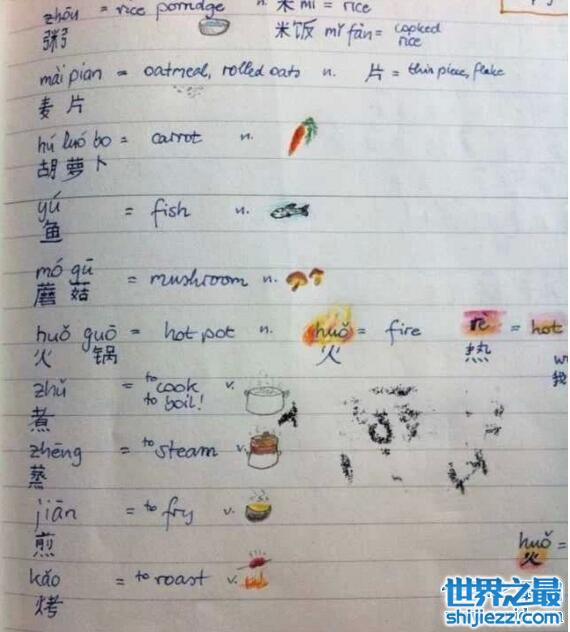 zhōu = rice porridge n. 米 mǐ = rice
粥 米饭 mǐ fàn = cooked rice
mài piàn = oatmeal, rolled oats n. 片 = thin piece, flake
麦片
hú luó bo = carrot n.
胡萝卜
yú = fish n.
鱼
mó gū = mushroom n.
蘑菇
huǒ guō = hot pot n. huǒ = fire rè = hot
火锅 火 热
zhǔ = to cook v.
煮 to boil!
zhēng = to steam v.
蒸
jiān = to fry v.
煎 huǒ =
kǎo = to roast v. 火
烤
世界之最
shijiezz.com